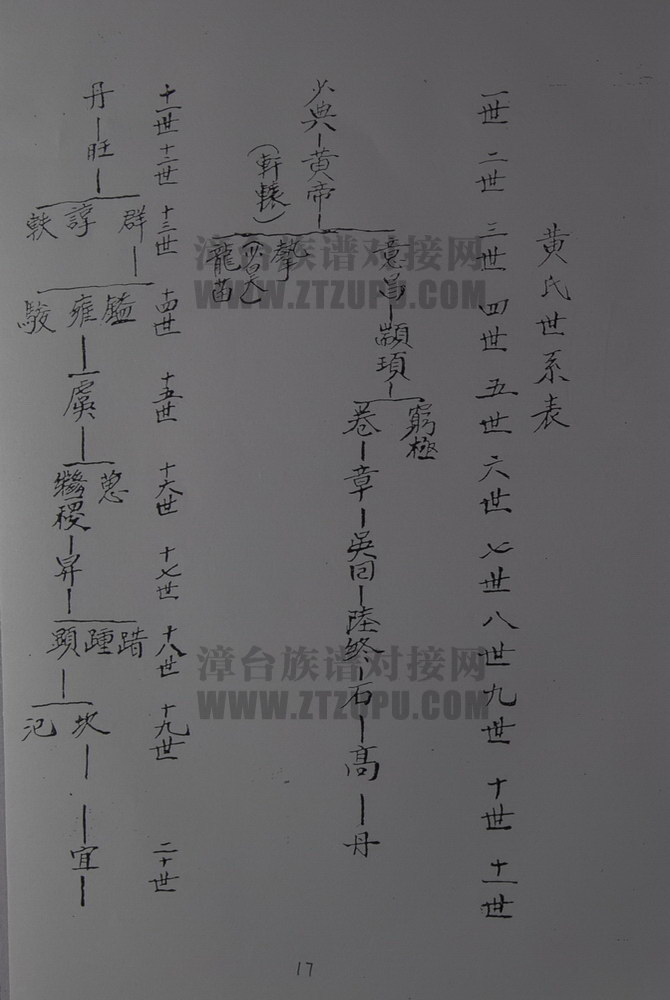 黄氏世系表
一世 二世 三世 四世 五世 六世 七世 八世 九世 十世 十一世
少典 黄帝 意昌 顓頊 窮極
卷 章 吳回 陸終 石 高 丹
(軒轅)
龍苗
十一世 十二世 十三世 十四世 十五世 十六世 十七世 十八世 十九世 二十世
丹 旺
群 諄 軼
鎰 雍 駿
虞
蔥
稷 昇
踖 踵 顯
坎 汜
宜
漳台族谱对接网
WWW.ZTZUPU.COM
漳台族谱对接网
WWW.ZTZUPU.COM
17